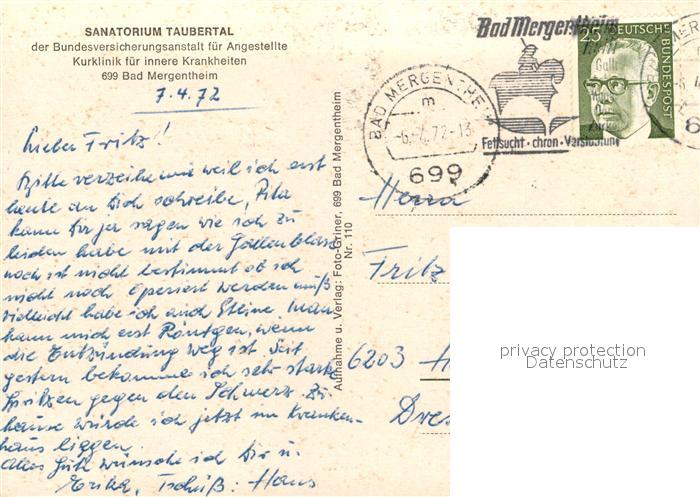 SANATORIUM TAUBERTAL
der Bundesversicherungsanstalt für Angestellte
Kurklinik für innere Krankheiten
699 Bad Mergentheim
7.4.72
Lieber Fritz!
Bitte verzeihe mir weil ich erst
heute an Dich schreibe, Rita
kann Dir ja sagen wie ich zu
leiden habe mit der Gallenblase
noch ist nicht bestimmt ob ich
nicht noch operiert werden muß
vielleicht habe ich auch Steine. Man
kann mich erst Röntgen, wenn
die Entzündung weg ist. Seit
gestern bekomme ich sehr starke
Spritzen gegen den Schmerz. Zu
hause würde ich jetzt im Kranken-
haus liggen.
Alles Gute wünsche ich Dir u.
Erika, Tschüß: Hans
Aufnahme u. Verlag: Foto-Griner, 699 Bad Mergentheim
Nr. 110
Bad Mergentheim
Fettsucht · chron · Verstopfung
BAD MERGENTHE
m
-6.4.72-13
699
25
DEUTSCHE BUNDESPOST
Herrn
Fritz
6203 H
Dres
privacy protection
Datenschutz